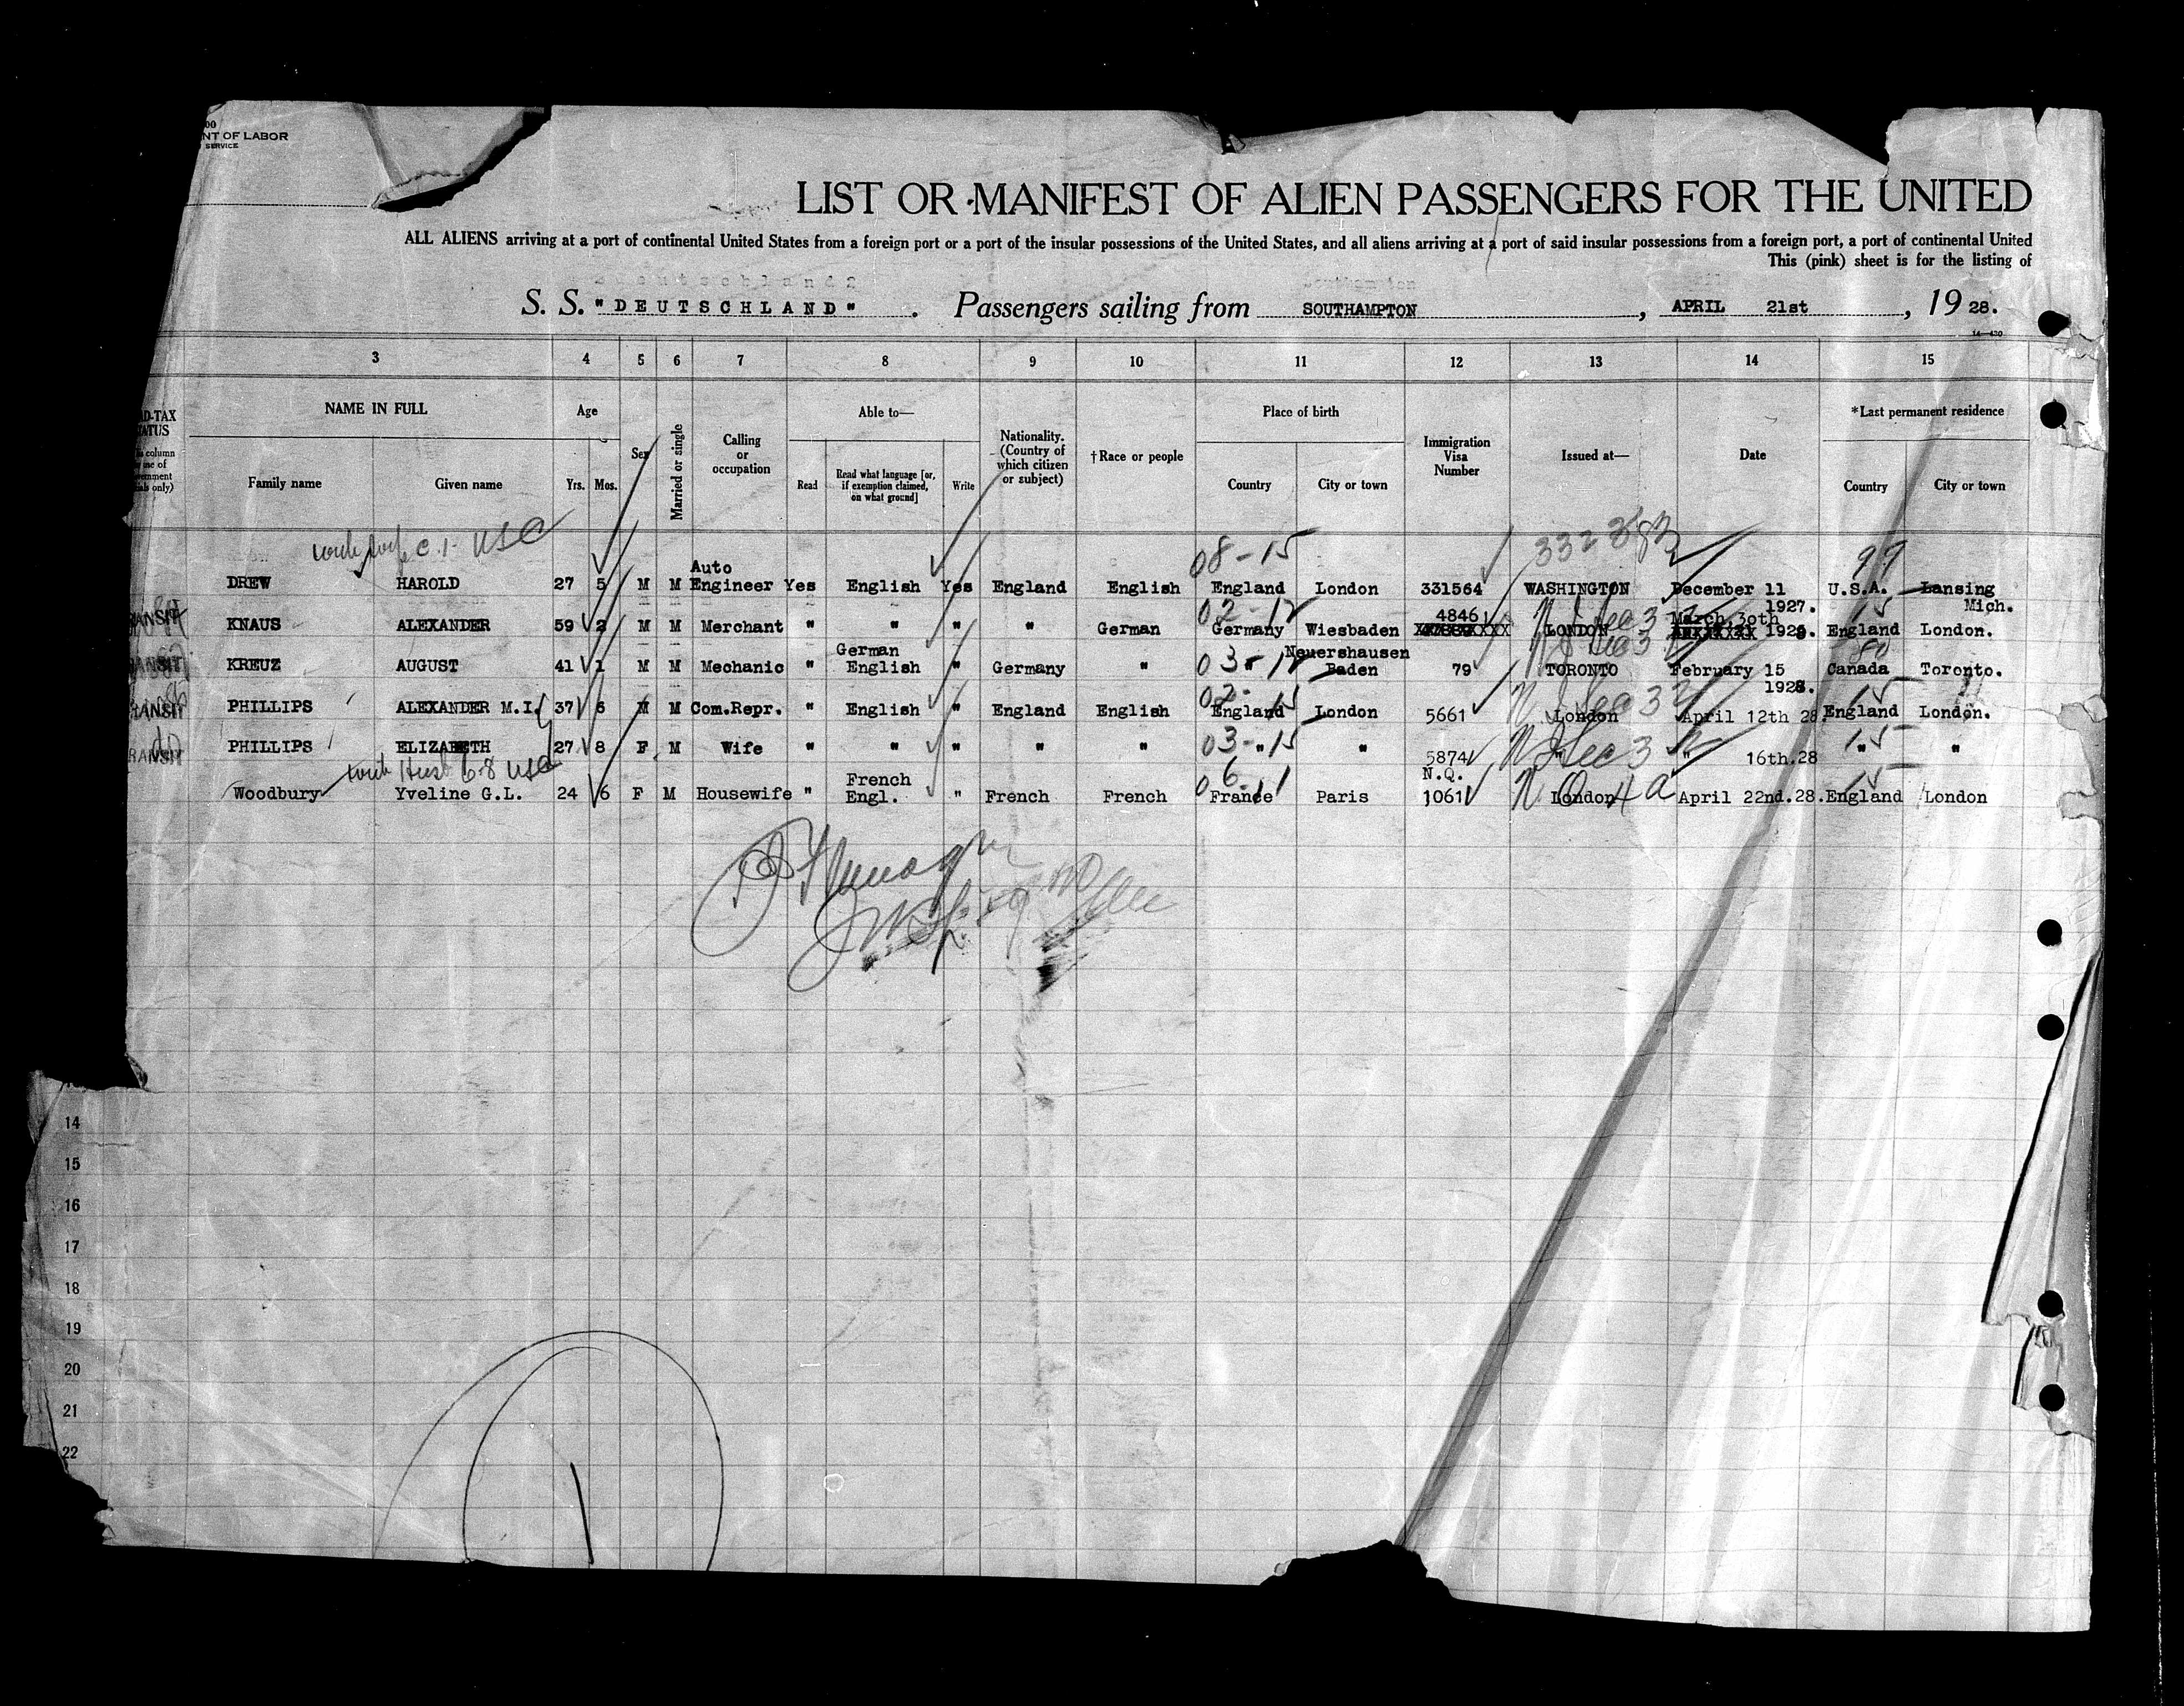 00
NT OF LABOR
SERVICE
LIST OR MANIFEST OF ALIEN PASSENGERS FOR THE UNITED
ALL ALIENS arriving at a port of continental United States from a foreign port or a port of the insular possessions of the United States, and all aliens arriving at a port of said insular possessions from a foreign port, a port of continental United
This (pink) sheet is for the listing of
S. S. "DEUTSCHLAND". Passengers sailing from SOUTHAMPTON, APRIL 21st, 19 28.
3 4 5 6 7 8 9 10 11 12 13 14 15
AD-TAX
ATUS
column
use of
ernment
ials only)
NAME IN FULL
Family name Given name
Age
Yrs. Mos.
Sex
Married or single
Calling
or
occupation
Able to—
Read
Read what language [or,
if exemption claimed,
on what ground]
Write
Nationality.
(Country of
which citizen
or subject)
†Race or people
Place of birth
Country City or town
Immigration
Visa
Number
Issued at—
Date
*Last permanent residence
Country City or town
C.1. USC
332383
08-15 99
Auto
DREW HAROLD 27 5 M M Engineer Yes English Yes England English England London 331564 WASHINGTON December 11 U.S.A. Lansing
1927. Mich.
02-12 4846 March 30th 15
RANSIT KNAUS ALEXANDER 59 2 M M Merchant " " " " German Germany Wiesbaden LONDON 1928 England London.
German Neuershausen
03-12 80
RANSIT KREUZ AUGUST 41 1 M M Mechanic " English " Germany " " Baden 79 TORONTO February 15 Canada Toronto.
1928.
02-15 15
RANSIT PHILLIPS ALEXANDER M.I. 37 6 M M Com.Repr. " English " England English England London 5661 London April 12th 28. England London.
03-15 Sec 3 15
RANSIT PHILLIPS ELIZABETH 27 8 F M Wife " " " " " " " 5874 " " 16th.28 " "
Hus 68 USC
French N.Q.
06-11 15
Woodbury Yveline G.L. 24 6 F M Housewife " Engl. " French French France Paris 1061 London April 22nd.28. England London
14
15
16
17
18
19
20
21
22